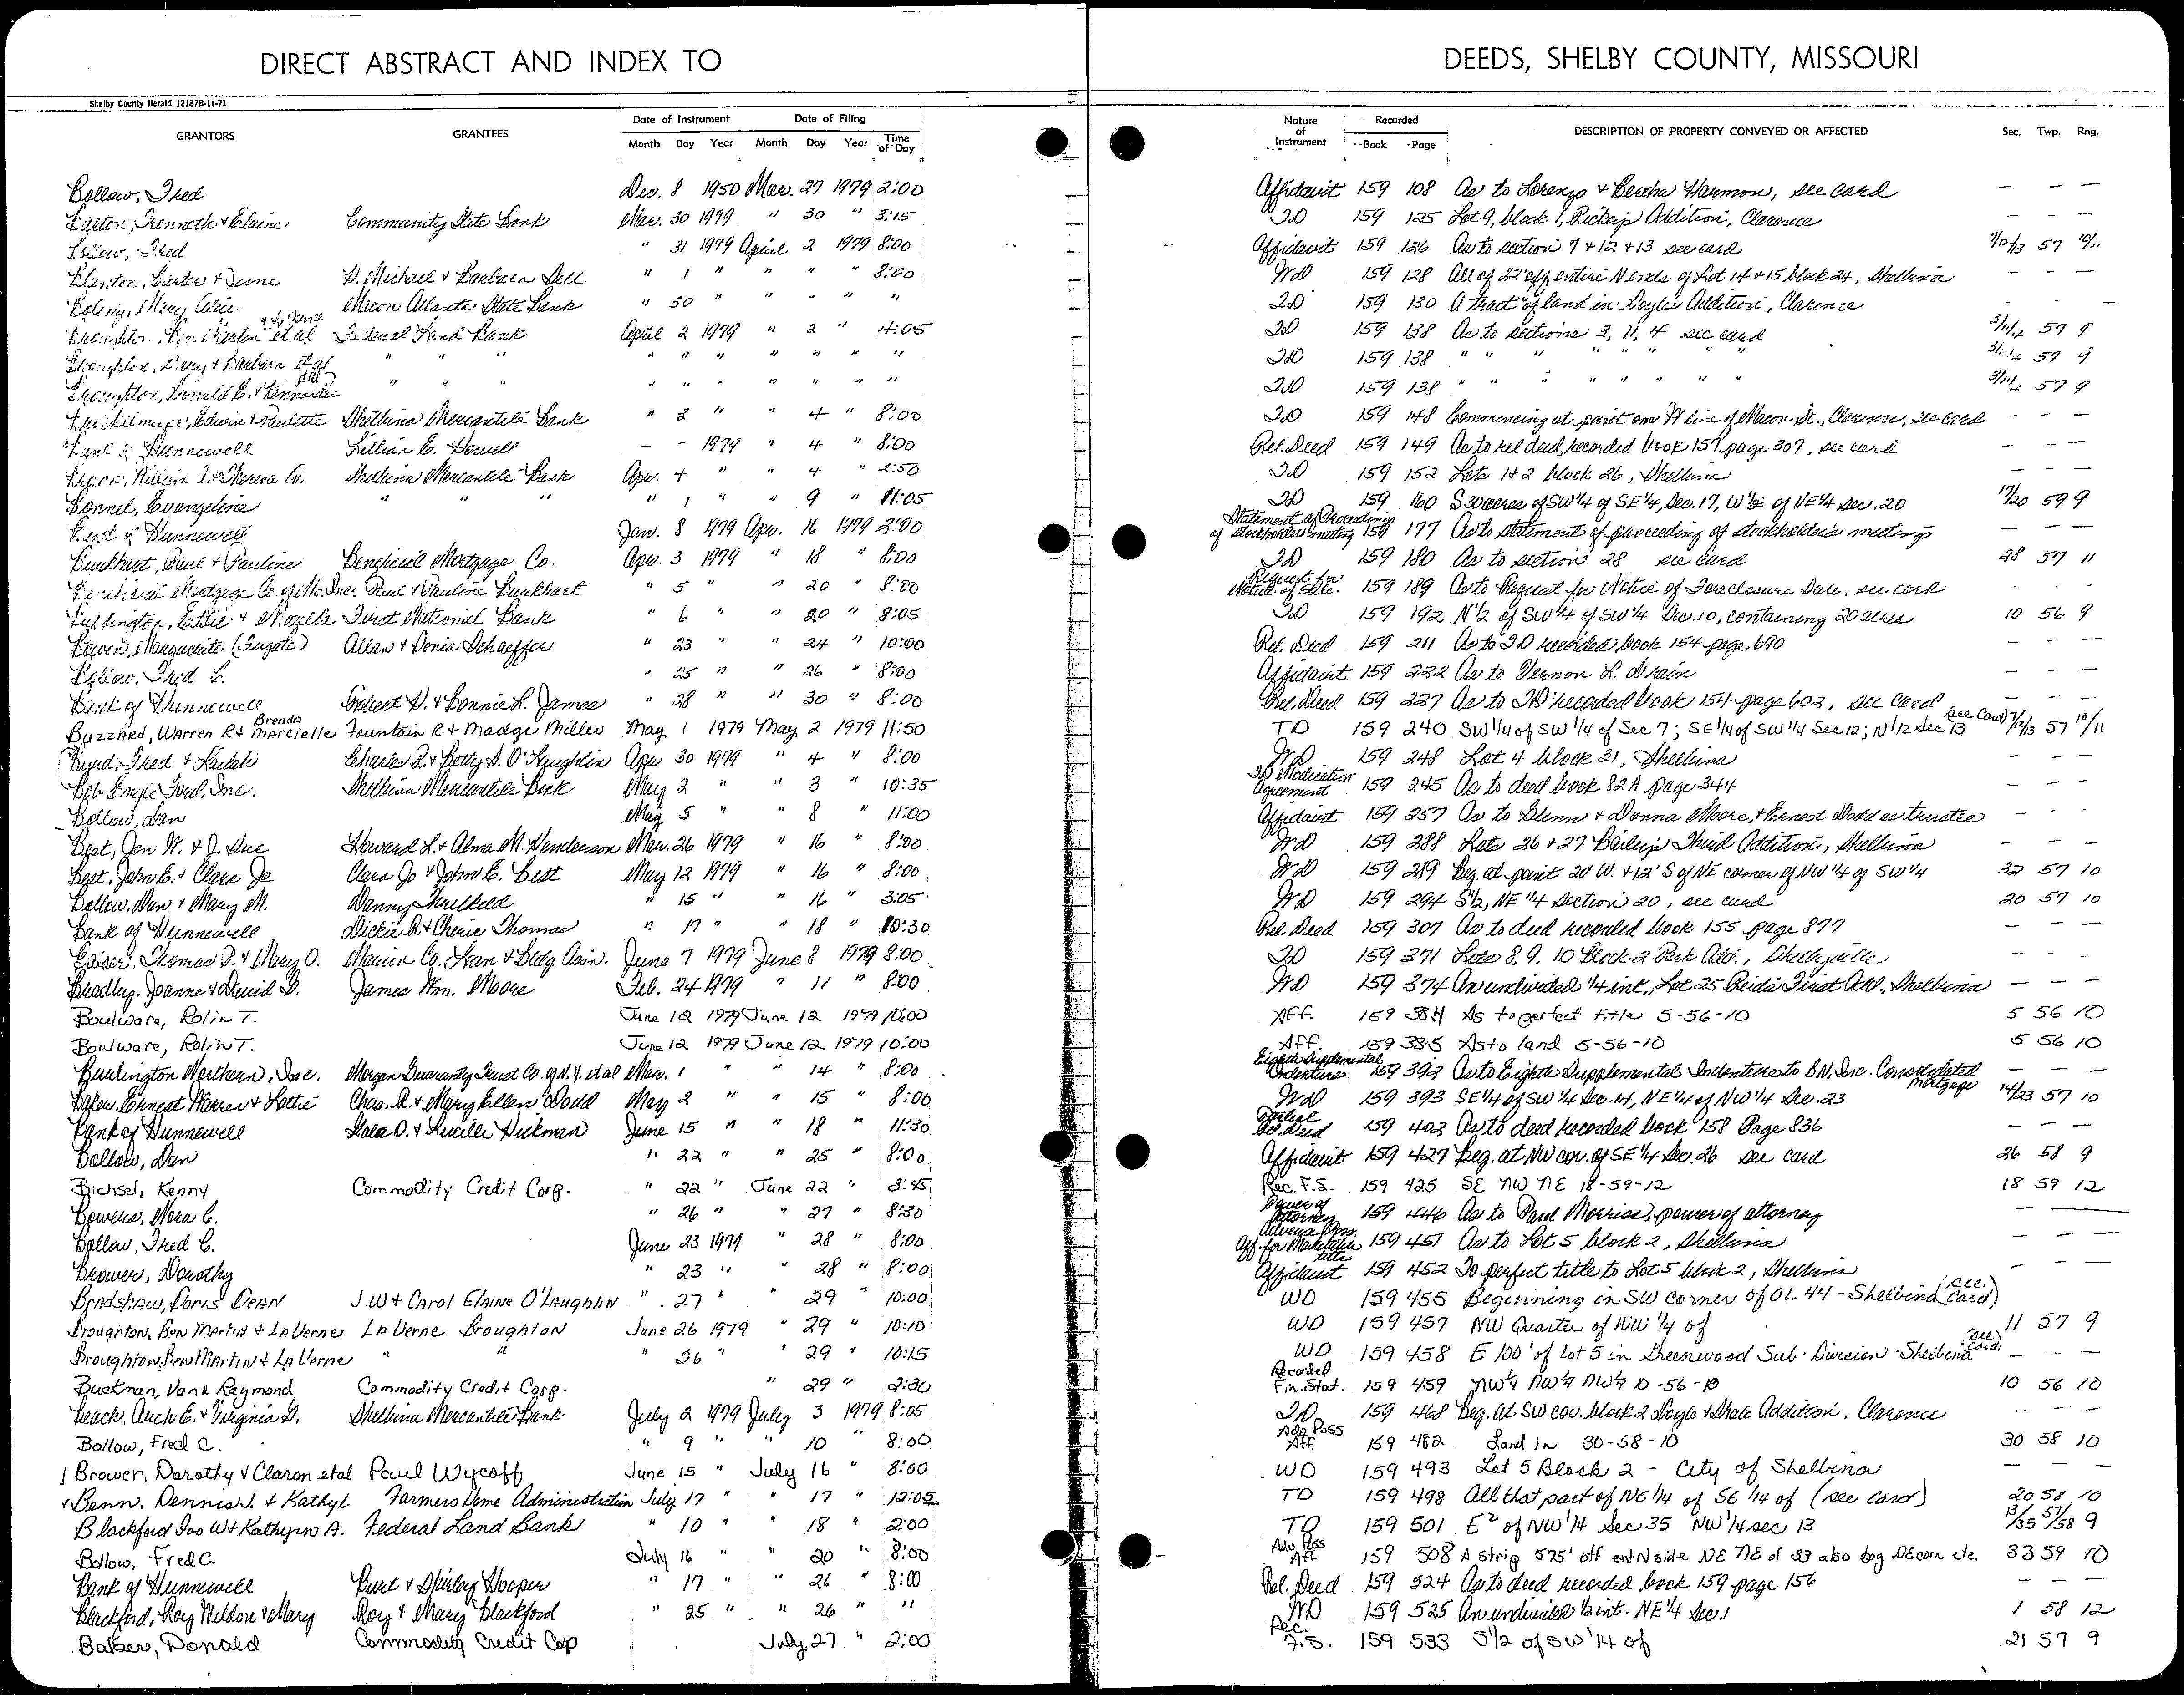 DIRECT ABSTRACT AND INDEX TO DEEDS, SHELBY COUNTY, MISSOURI
Shelby County Herald 12187B-11-71
GRANTORS GRANTEES Date of Instrument Date of Filing Nature of Instrument Recorded DESCRIPTION OF PROPERTY CONVEYED OR AFFECTED Sec. Twp. Rng.
Month Day Year Month Day Year Time of Day Book Page
Bollow, Fred Dec. 8 1950 Mar. 27 1979 2:00 Affidavit 159 108 As to Lorenzo & Bertha Harmon, see card — — —
Community State Bank Mar. 30 1979 " 30 " 3:15 TD 159 125 Lot 9, block 1, Addition, Clarence — — —
Bollow, Fred " 31 1979 April 2 1979 8:00 Affidavit 159 126 As to section 7 & 12 & 13 see card 7/12/13 57 10/11
H. Michael & Barbara Dell " 1 " " " " 8:00 WD 159 128 All of 22' off entire N ends of Lot 14 & 15 block 24, Shelbina — — —
Boling, Mary Alice Macon Atlanta State Bank " 30 " " " " " TD 159 130 A tract of land in Doyle Addition, Clarence — — —
Broughton, Ben Martin & LaVerne et al Federal Land Bank April 2 1979 " 2 " 4:05 TD 159 138 As to sections 3, 11, 4 see card 3/11/4 57 9
Broughton, & Barbara et al " " " " " " " " " " TD 159 138 " " " " " " " 3/11/4 57 9
Broughton, Donald E. & et al " " " " " " " " " " TD 159 138 " " " " " " " 3/11/4 57 9
Edwin & Paulette Shelbina Mercantile Bank " 3 " " 4 " 8:00 TD 159 148 Commencing at point on W line of Macon St., Clarence, see card — — —
Bank of Hunnewell Lillian E. Howell — - 1979 " 4 " 8:00 Rel. Deed 159 149 As to rel deed, recorded book 157 page 307, see card — — —
William & Theresa A. Shelbina Mercantile Bank Apr. 4 " " 4 " 2:50 TD 159 152 Lots 1 & 2 block 26, Shelbina — — —
Bonnel, Evangeline " " " " 1 " " 9 " 11:05 TD 159 160 S 30 acres of SW¼ of SE¼, Sec. 17, W½ of NE¼ Sec. 20 17/20 59 9
Bank of Hunnewell Jan. 8 1979 Apr. 16 1979 2:00 Statement of Proceeding of Stockholders meeting 159 177 As to statement of proceeding of stockholder's meetings — — —
Burkhart, Paul & Pauline Beneficial Mortgage Co. Apr. 3 1979 " 18 " 8:00 TD 159 180 As to section 28 see card 28 57 11
Beneficial Mortgage Co. of Mo. Inc. Paul & Pauline Burkhart " 5 " " 20 " 8:00 Request for Notice of Sale. 159 189 As to Request for Notice of Foreclosure Sale, see card — — —
First National Bank " 6 " " 20 " 8:05 TD 159 192 N½ of SW¼ of SW¼ Sec. 10, containing 20 acres 10 56 9
Bowen, Marguerite (Fugate) Allan & Donia Schaeffer " 23 " 24 " 10:00 Rel. Deed 159 211 As to TD recorded book 154 page 690 — — —
Bollow, Fred C. " 25 " " 26 " 8:00 Affidavit 159 222 As to Vernon L. Drain — — —
Bank of Hunnewell Robert D. & Bonnie L. James " 28 " " 30 " 8:00 Rel. Deed 159 227 As to TD recorded book 154 page 602, see card — — —
Buzzard, Warren R & Marcielle Brenda Fountain R & Madge Miller May 1 1979 May 2 1979 11:50 TD 159 240 SW¼ of SW¼ of Sec 7; SE¼ of SW¼ Sec 12; N½ Sec 13 see card 7/12/13 57 10/11
Byrd, Fred & Charles R. & Betty S. O'Laughlin Apr 30 1979 " 4 " 8:00 WD 159 248 Lot 4 block 21, Shelbina — — —
Bob Ford, Inc. Shelbina Mercantile Bank May 2 " " 3 " 10:35 TD Modication Agreement 159 245 As to deed book 82A page 344 — — —
Bollow, Dan May 5 " " 8 " 11:00 Affidavit 159 257 As to Glenn & Donna Moore, & Ernest Dodd as trustee — - -
Best, Jon W. & J. Sue Howard L. & Alma M. Henderson Mar. 26 1979 " 16 " 8:00 WD 159 288 Lots 26 & 27 Third Addition, Shelbina — — —
Best, John E. & Clara Jo Clara Jo & John E. Best May 12 1979 " 16 " 8:00 WD 159 289 Beg. at point 20' W. & 12' S of NE corner of NW¼ of SW¼ 32 57 10
Bollow, Dan & Mary M. Danny Threlkeld " 15 " " 16 " 3:05 WD 159 294 S½, NE¼ section 20, see card 20 57 10
Bank of Hunnewell Dickie R. & Cherie Thomas " 17 " " 18 " 10:30 Rel. Deed 159 307 As to deed recorded book 155 page 877 — — —
Thomas P. & Mary O. Marion Co. Loan & Bldg Assn. June 7 1979 June 8 1979 8:00 TD 159 371 Lots 8, 9, 10 block 2 Park Add., Shelbyville. - - -
Bradley, Joanne & David D. James Wm. Moore Feb. 24 1979 " 11 " 8:00 WD 159 374 An undivided ¼ int., Lot 25 Reid's First Add., Shelbina — — —
Boulware, Rolin T. June 12 1979 June 12 1979 10:00 Aff. 159 384 As to perfect title 5-56-10 5 56 10
Boulware, Rolin T. June 12 1979 June 12 1979 10:00 Aff. 159 385 As to land 5-56-10 5 56 10
Burlington Northern, Inc. Morgan Guaranty Trust Co. of N.Y. et al Mar. 1 " " 14 " 8:00 Eighth Supplemental Indenture 159 392 As to Eighth Supplemental Indenture to B.N. Inc. Consolidated Mortgage — — —
Baker, Ernest Warren & Lottie Chas. R. & Mary Ellen Dodd May 2 " " 15 " 8:00 WD 159 393 SE¼ of SW¼ Sec. 14, NE¼ of NW¼ Sec. 23 14/23 57 10
Bank of Hunnewell D. & Lucille Hickman June 15 " " 18 " 11:30 Partial Rel. Deed 159 402 As to deed recorded book 158 Page 836 — — —
Bollow, Dan " 22 " " 25 " 8:00 Affidavit 159 427 Beg. at NW cor. of SE¼ Sec. 26 see card 26 58 9
Bichsel, Kenny Commodity Credit Corp. " 22 " June 22 " 3:45 Rec. F.S. 159 425 SE NW NE 18-59-12 18 59 12
Bowers, Nora C. " 26 " " 27 " 8:30 Power of Attorney 159 446 As to Paul Morrise, power of attorney — —
Bollow, Fred C. June 23 1979 " 28 " 8:00 Adverse Poss. Aff. for Marketable title 159 451 As to Lot 5 block 2, Shelbina — — —
Brower, Dorothy " 23 " " 28 " 8:00 Affidavit 159 452 To perfect title to Lot 5 block 2, Shelbina — — —
Bradshaw, Doris Dean J.W & Carol Elaine O'Laughlin " 27 " " 29 " 10:00 WD 159 455 Beginning in SW corner of OL 44 - Shelbina (see card)
Broughton, Ben Martin & LaVerne LaVerne Broughton June 26 1979 " 29 " 10:10 WD 159 457 NW Quarter of NW ¼ of 11 57 9
Broughton, Ben Martin & LaVerne " " " 26 " " 29 " 10:15 WD 159 458 E 100' of Lot 5 in Greenwood Sub-Division - Shelbina (see card) — — —
Buckman, Van & Raymond Commodity Credit Corp. " 29 " 2:30 Recorded Fin. Stat. 159 459 NW¼ NW¼ NW¼ 10-56-10 10 56 10
Beach, Auch E. & Virginia D. Shelbina Mercantile Bank July 2 1979 July 3 1979 8:05 TD 159 468 Beg. at SW cor. block 2 Doyle & Shale Addition, Clarence — — —
Bollow, Fred C. " 9 " " 10 " 8:00 Adv Poss Aff. 159 482 Land in 30-58-10 30 58 10
Brower, Dorothy & Claron etal Paul Wycoff June 15 " July 16 " 8:00 WD 159 493 Lot 5 Block 2 - City of Shelbina — — —
Benn, Dennis J. & Kathy L. Farmers Home Administration July 17 " " 17 " 12:05 TD 159 498 All that part of NE¼ of SE¼ of (see card) 20 58 10
Blackford Joo W & Kathyrn A. Federal Land Bank " 10 " " 18 " 2:00 TD 159 501 E² of NW¼ Sec 35 NW¼ sec 13 13/35 57/58 9
Bollow, Fred C. July 16 " " 20 " 8:00 Adv Poss Aff 159 508 A strip 575' off ent N side NE NE of 33 also beg NE corn etc. 33 59 10
Bank of Hunnewell Burt & Shirley Hooper " 17 " " 26 " 8:00 Rel. Deed 159 524 As to deed recorded book 159 page 156 — — —
Blackford, Roy Weldon & Mary Roy & Mary Blackford " 25 " " 26 " " WD 159 525 An undivided ½ int. NE¼ Sec. 1 1 58 12
Baker, Donald Commodity Credit Cop July 27 " 2:00 Rec. F.S. 159 533 S½ of SW ¼ of 21 57 9